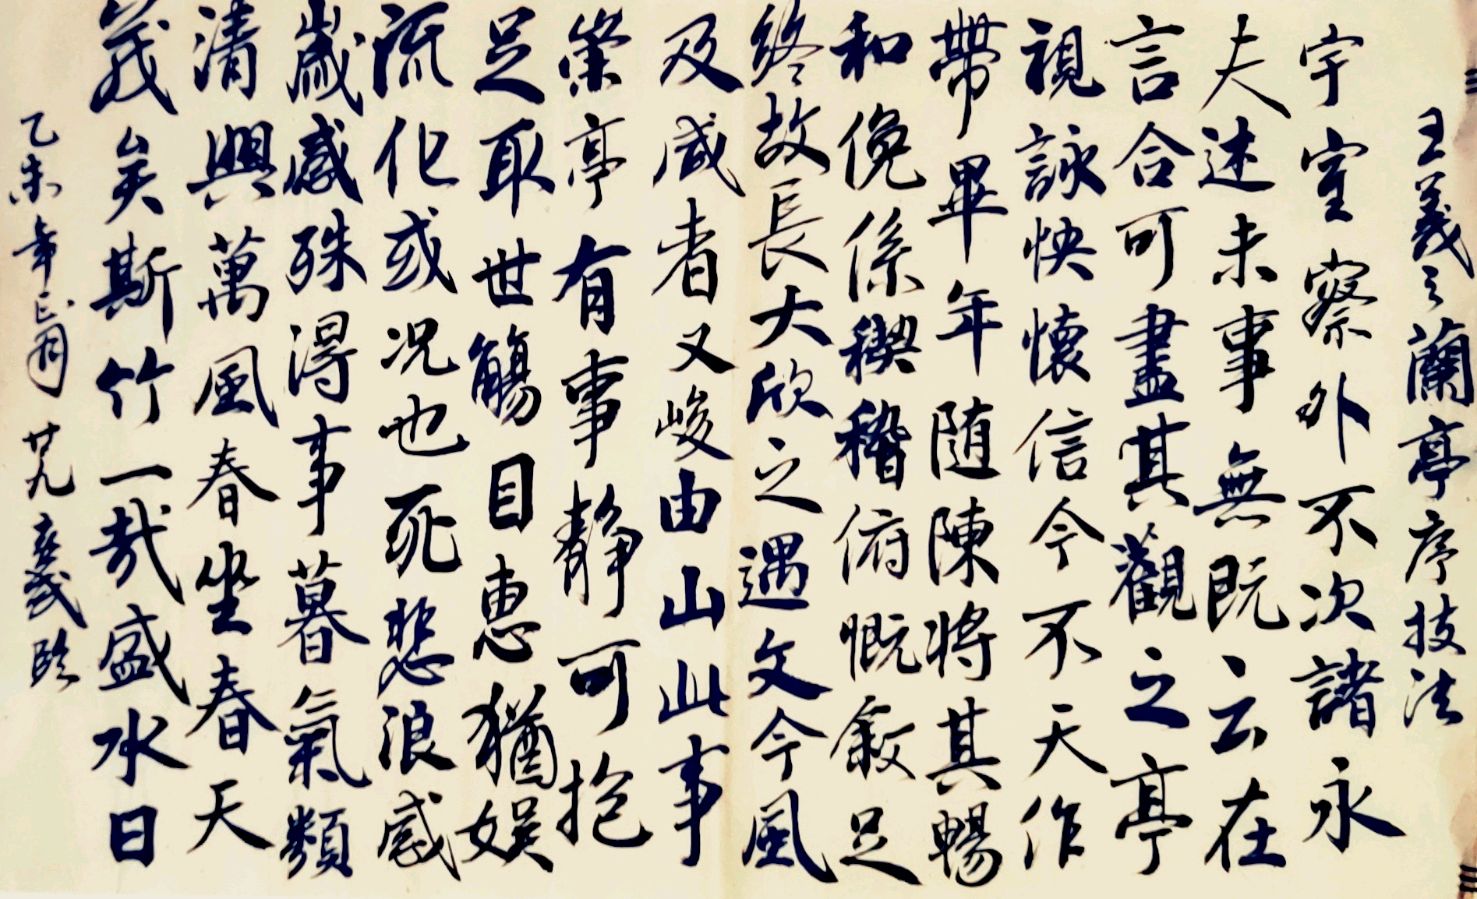 王羲之蘭亭序技法
宇室察外不次諸永
夫述未事無既云在
言合可盡其觀之亭
視詠快懷信今不天作
帶畢年随陳将其暢
和俛係稧稽俯慨敘足
終故長大欣之遇文今風
及咸者又峻由山此事
榮亭有事靜可抱
足取世觴目惠猶娱
流化或况也死悲浪感
歲感殊得事暮氣類
清興萬風春坐春天
義矣斯竹一哉盛水日
乙未年三月廿九 義臨